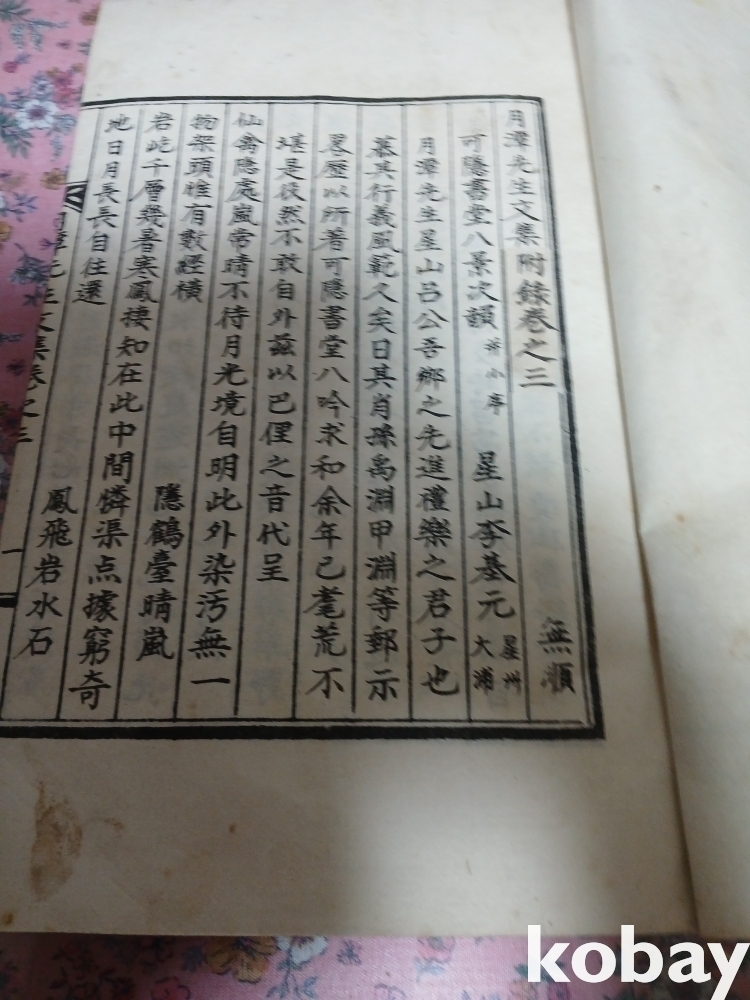 月潭先生文集附錄卷之三
無順
可隱書堂八景次韻 并小序 星山李基元 星州 大浦
月潭先生星山呂公吾鄉之先進禮樂之君子也
慕其行義風範久矣日其肖孫禹淵甲淵等郵示
畧歷以所著可隱書堂八吟求和余年已耄荒不
堪是役然不敢自外茲以巴俚之音代呈
仙禽隱處嵐常晴不待月光境自明此外染汚無一
物架頭惟有數經橫
隱鶴臺晴嵐
岩屹千層幾暑寒鳳棲知在此中間憐渠点據窮奇
地日月長長自住還
鳳飛岩水石
月潭先生文集卷之三
一
kobay